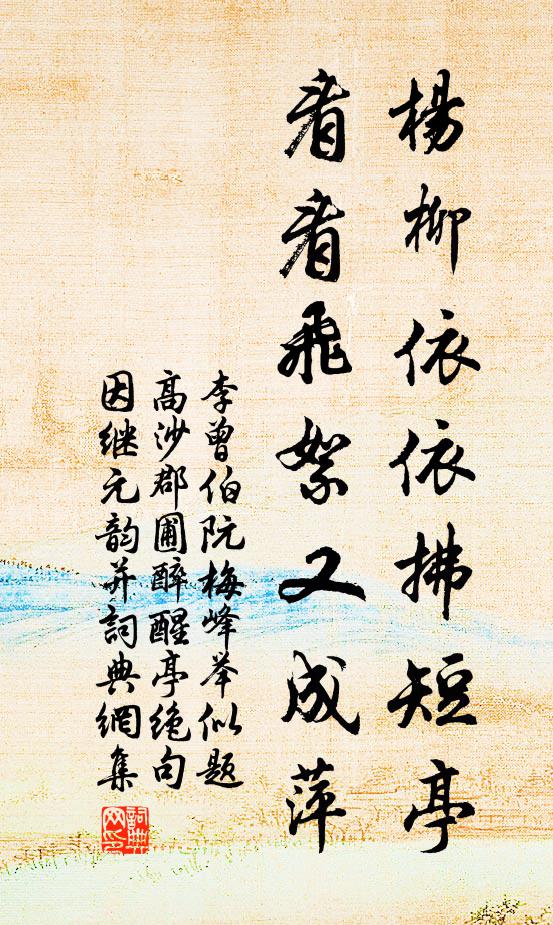 楊柳依依拂短亭
看看飛絮又成萍
李曾伯阮梅峰举似題
高沙郡圃醉醒亭绝句
因继元韵并詞典網集
詞典
网印